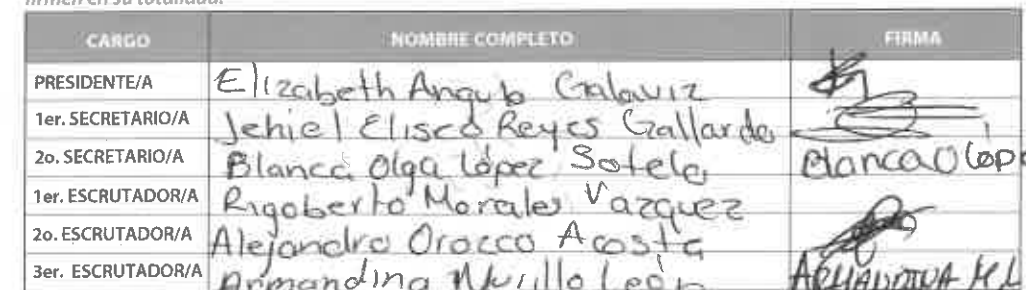 firmen en su totalidad.
CARGO NOMBRE COMPLETO FIRMA
PRESIDENTE/A Elizabeth Angulo Galaviz
1er. SECRETARIO/A Jehiel Eliseo Reyes Gallardo
2o. SECRETARIO/A Blanca Olga López Sotelo Blanca O Lóp
1er. ESCRUTADOR/A Rigoberto Morales Vazquez
2o. ESCRUTADOR/A Alejandro Orozco Acosta
3er. ESCRUTADOR/A Armandina Murillo León ARMANDINA M.L